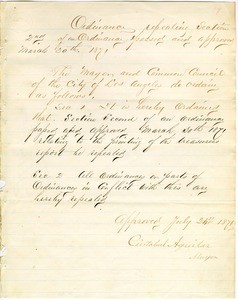 Ordinance repealing Section
2nd of an Ordinance passed and approved
March 30th 1871
The Mayor and Common Council
of the City of Los Angeles do ordain
as follows
Sec 1 It is hereby Ordained
that Section Second of an ordinance
passed and approved March 30th 1871
relating to the printing of the Treasurers
report be repealed
Sec 2 All Ordinances or parts of
Ordinances in conflict with this are
hereby repealed
Approved July 1871
Cristobal Aguilar
Mayor